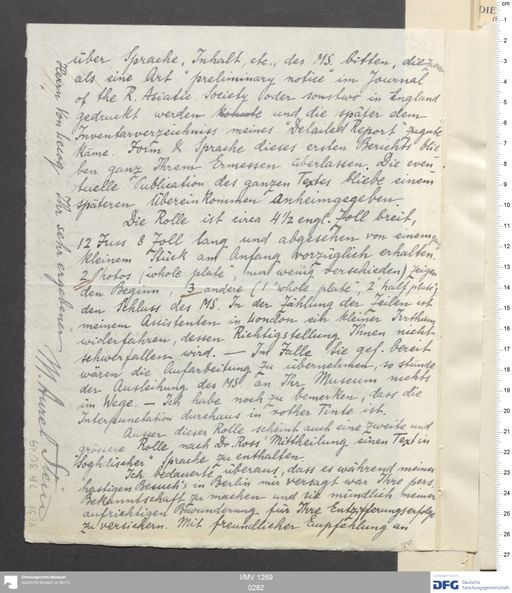 über Sprache, Inhalt, etc., des MS. bitten, die
als eine Art "preliminary notice" im Journal
of the R. Asiatic Society oder sonstwo in England
gedruckt werden und die später dem
Inventarverzeichniss meines "Detailed Report" zugute
käme. Form & Sprache dieses ersten Berichts blie-
ben ganz Ihrem Ermessen überlassen. Die even-
tuelle Publication des ganzen Textes bliebe einem
späteren Übereinkommen anheimgegeben.
Die Rolle ist circa 4 1/2 engl. Zoll breit,
12 Fuss 8 Zoll lang und abgesehen von einem
kleinem Stück am Anfang vorzüglich erhalten.
2 Photos (whole plate, nur wenig verschieden) zeigen
den Beginn, 3 andere (1 "whole plate", 2 half plate)
den Schluss des MS. In der Zählung der Zeilen ist
meinem Assistenten in London ein kleiner Irrthum
widerfahren, dessen Richtigstellung Ihnen nicht
schwerfallen wird. — Im Falle Sie gef. bereit
wären die Aufarbeitung zu übernehmen, so stünde
der Ausleihung des MS an Ihr Museum nichts
im Wege. — Ich habe noch zu bemerken, dass die
Interpunctation durchaus in rother Tinte ist.
Ausser dieser Rolle scheint auch eine zweite und
grössere Rolle nach Dr. Ross' Mittheilung einen Text in
Soghdischer Sprache zu enthalten.
Ich bedauerte überaus, dass es während meines
hastigen Besuch's in Berlin mir versagt war Ihre pers.
Bekanntschaft zu machen und Sie mündlich meiner
aufrichtigen Bewunderung für Ihre Entzifferungserfolge
zu versichern. Mit freundlicher Empfehlung an
Herrn von Lecoq, Ihr sehr ergebener
M. Aurel Stein
Ethnologisches Museum
Staatliche Museen zu Berlin
I/MV 1269
0262
DFG
Deutsche
Forschungsgemeinschaft
DIE